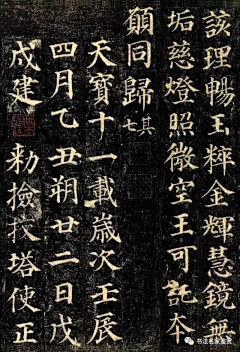 該理暢玉粹金輝慧鏡無
垢慈燈照微空王可託本
願同歸其七
天寶十一載歲次壬辰
四月乙丑朔廿二日戊
戌建 勅檢挍塔使正
书法名家鉴赏